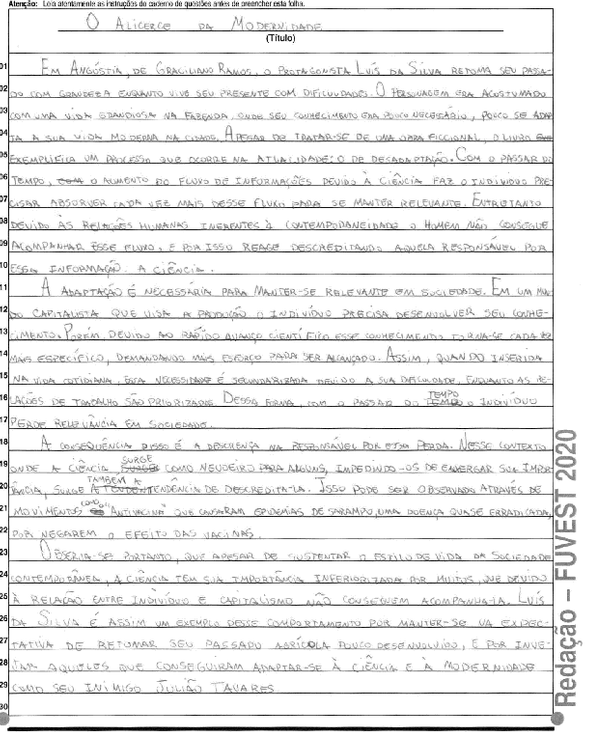 Atenção: Leia atentamente as instruções do caderno de questões antes de preencher esta folha.
O ALICERCE DA MODERNIDADE
(Título)
01 EM ANGÚSTIA, DE GRACILIANO RAMOS, O PROTAGONISTA LUÍS DA SILVA RETOMA SEU PASSA-
02 DO COM GRANDEZA ENQUANTO VIVE SEU PRESENTE COM DIFICULDADES. O PERSONAGEM ERA ACOSTUMADO
03 COM UMA VIDA GRANDIOSA NA FAZENDA, ONDE SEU CONHECIMENTO ERA POUCO NECESSÁRIO, POUCO SE ADAP
04 TA A SUA VIDA MODERNA NA CIDADE. APESAR DE TRATAR-SE DE UMA OBRA FICCIONAL, O LIVRO
05 EXEMPLIFICA UM PROCESSO QUE OCORRE NA ATUALIDADE: O DE DESADAPTAÇÃO. COM O PASSAR DO
06 TEMPO, O AUMENTO DO FLUXO DE INFORMAÇÕES DEVIDO À CIÊNCIA FAZ O INDIVÍDUO PRE-
07 CISAR ABSORVER CADA VEZ MAIS DESSE FLUXO PARA SE MANTER RELEVANTE. ENTRETANTO
08 DEVIDO ÀS RELAÇÕES HUMANAS INERENTES À CONTEMPORANEIDADE O HOMEM NÃO CONSEGUE
09 ACOMPANHAR ESSE FLUXO, E POR ISSO REAGE DESCREDITANDO AQUELA RESPONSÁVEL POR
10 ESSA INFORMAÇÃO: A CIÊNCIA.
11 A ADAPTAÇÃO É NECESSÁRIA PARA MANTER-SE RELEVANTE EM SOCIEDADE. EM UM MUN-
12 DO CAPITALISTA QUE VISA A PRODUÇÃO O INDIVÍDUO PRECISA DESENVOLVER SEU CONHE-
13 CIMENTO. PORÉM DEVIDO AO RÁPIDO AVANÇO CIENTÍFICO ESSE CONHECIMENTO TORNA-SE CADA VEZ
14 MAIS ESPECÍFICO, DEMANDANDO MAIS ESFORÇO PARA SER ALCANÇADO. ASSIM, QUANDO INSERIDA
15 NA VIDA COTIDIANA, ESSA NECESSIDADE É SECUNDARIZADA DEVIDO A SUA DIFICULDADE, ENQUANTO AS RE-
16 LAÇÕES DE TRABALHO SÃO PRIORIZADAS. DESSA FORMA, COM O PASSAR DO TEMPO O INDIVÍDUO
17 PERDE RELEVÂNCIA EM SOCIEDADE.
18 A CONSEQUÊNCIA DISSO É A DESCRENÇA NA RESPONSÁVEL POR ESSA PERDA. NESSE CONTEXTO
19 ONDE A CIÊNCIA SURGE COMO NEVOEIRO PARA ALGUNS, IMPEDINDO-OS DE ENXERGAR SUA IMPOR
20 TÂNCIA, SURGE TAMBÉM A TENDÊNCIA DE DESCREDITA-LA. ISSO PODE SER OBSERVADO ATRAVÉS DE
21 MOVIMENTOS COMO O "ANTIVACINA" QUE CAUSARAM EPIDEMIAS DE SARAMPO, UMA DOENÇA QUASE ERRADICADA,
22 POR NEGAREM O EFEITO DAS VACINAS.
23 OBSERVA-SE PORTANTO, QUE APESAR DE SUSTENTAR O ESTILO DE VIDA DA SOCIEDADE
24 CONTEMPORÂNEA, A CIÊNCIA TEM SUA IMPORTÂNCIA INFERIORIZADA POR MUITOS, QUE DEVIDO
25 À RELAÇÃO ENTRE INDIVÍDUO E CAPITALISMO NÃO CONSEGUEM ACOMPANHA-LA. LUÍS
26 DA SILVA É ASSIM UM EXEMPLO DESSE COMPORTAMENTO POR MANTER-SE NA EXPEC-
27 TATIVA DE RETOMAR SEU PASSADO AGRÍCOLA POUCO DESENVOLVIDO, E POR INVE-
28 JAR AQUELES QUE CONSEGUIRAM ADAPTAR-SE À CIÊNCIA E À MODERNIDADE
29 COMO SEU INIMIGO JULIÃO TAVARES
30
Redação – FUVEST 2020